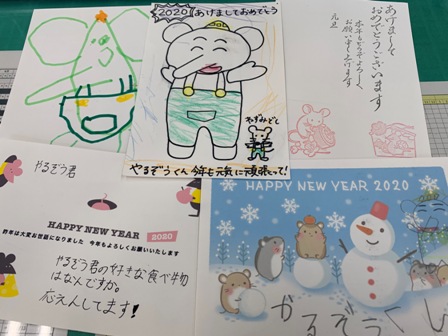 2020 あけましておめでとう
ねずみどし
やるぞうくん 今年も元気に頑張って!
あけまして
おめでとうございます
本年もどうぞよろしく
お願い申し上げます
元旦
やるぞう君
HAPPY NEW YEAR 2020
昨年は大変お世話になりました 今年もよろしくお願いいたします
やるぞう君の好きな食べ物
はなんですか。
応えんしてます!
HAPPY NEW YEAR 2020
やるぞうくん